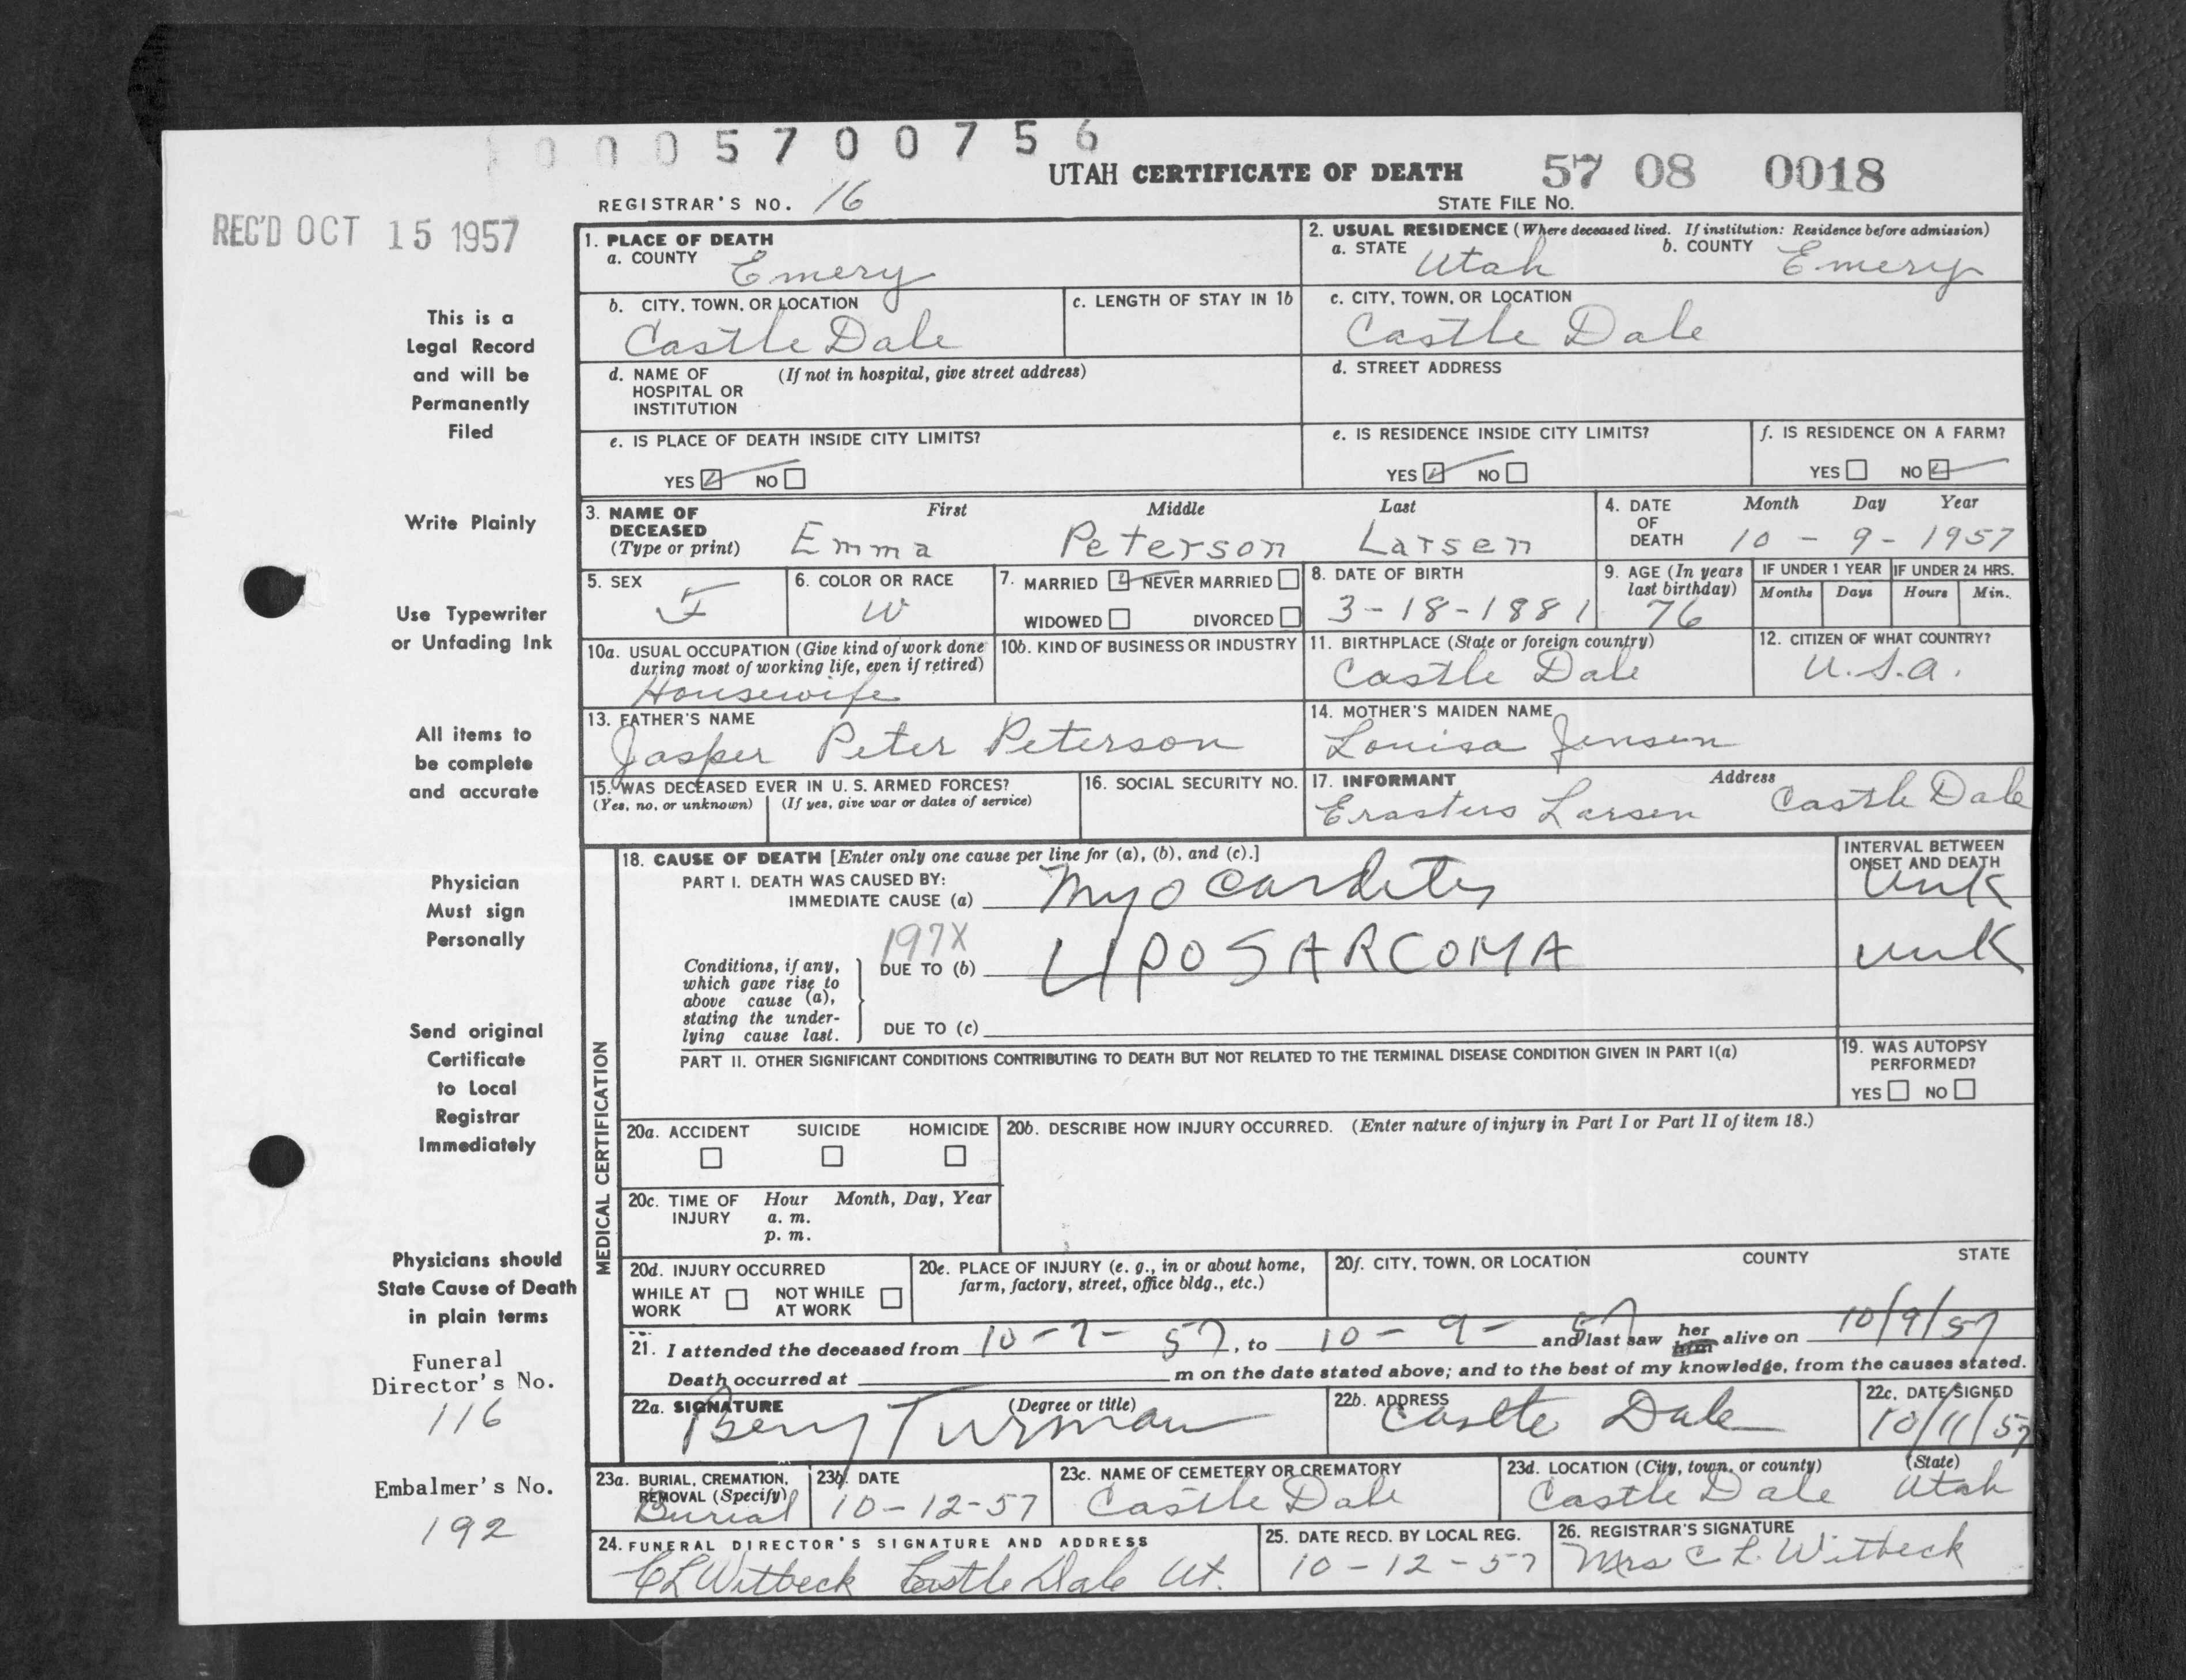 0005700756
UTAH CERTIFICATE OF DEATH 57 08 0018
REGISTRAR'S NO. 16 STATE FILE NO.
REC'D OCT 15 1957
This is a
Legal Record
and will be
Permanently
Filed
Write Plainly
Use Typewriter
or Unfading Ink
All items to
be complete
and accurate
Physician
Must sign
Personally
Send original
Certificate
to Local
Registrar
Immediately
Physicians should
State Cause of Death
in plain terms
Funeral
Director's No.
116
Embalmer's No.
192
1. PLACE OF DEATH
a. COUNTY Emery
2. USUAL RESIDENCE (Where deceased lived. If institution: Residence before admission)
a. STATE Utah b. COUNTY Emery
b. CITY, TOWN, OR LOCATION
Castle Dale
c. LENGTH OF STAY IN 1b
c. CITY, TOWN, OR LOCATION
Castle Dale
d. NAME OF (If not in hospital, give street address)
HOSPITAL OR
INSTITUTION
d. STREET ADDRESS
e. IS PLACE OF DEATH INSIDE CITY LIMITS?
YES NO
e. IS RESIDENCE INSIDE CITY LIMITS?
YES NO
f. IS RESIDENCE ON A FARM?
YES NO
3. NAME OF First Middle Last
DECEASED
(Type or print) Emma Peterson Larsen
4. DATE Month Day Year
OF
DEATH 10 - 9 - 1957
5. SEX
F
6. COLOR OR RACE
W
7. MARRIED NEVER MARRIED
WIDOWED DIVORCED
8. DATE OF BIRTH
3-18-1881
9. AGE (In years
last birthday)
76
IF UNDER 1 YEAR IF UNDER 24 HRS.
Months Days Hours Min.
10a. USUAL OCCUPATION (Give kind of work done
during most of working life, even if retired)
Housewife
10b. KIND OF BUSINESS OR INDUSTRY
11. BIRTHPLACE (State or foreign country)
Castle Dale
12. CITIZEN OF WHAT COUNTRY?
U.S.A.
13. FATHER'S NAME
Jasper Peter Peterson
14. MOTHER'S MAIDEN NAME
Louisa Jensen
15. WAS DECEASED EVER IN U. S. ARMED FORCES?
(Yes, no, or unknown) (If yes, give war or dates of service)
16. SOCIAL SECURITY NO.
17. INFORMANT Address
Erastus Larsen Castle Dale
MEDICAL CERTIFICATION
18. CAUSE OF DEATH [Enter only one cause per line for (a), (b), and (c).]
PART I. DEATH WAS CAUSED BY:
IMMEDIATE CAUSE (a) Myocardites
INTERVAL BETWEEN
ONSET AND DEATH
unk
197X
Conditions, if any,
which gave rise to
above cause (a),
stating the under-
lying cause last.
DUE TO (b) LIPOSARCOMA unk
DUE TO (c)
PART II. OTHER SIGNIFICANT CONDITIONS CONTRIBUTING TO DEATH BUT NOT RELATED TO THE TERMINAL DISEASE CONDITION GIVEN IN PART I(a)
19. WAS AUTOPSY
PERFORMED?
YES NO
20a. ACCIDENT SUICIDE HOMICIDE
20b. DESCRIBE HOW INJURY OCCURRED. (Enter nature of injury in Part I or Part II of item 18.)
20c. TIME OF Hour Month, Day, Year
INJURY a. m.
p. m.
20d. INJURY OCCURRED
WHILE AT NOT WHILE
WORK AT WORK
20e. PLACE OF INJURY (e. g., in or about home,
farm, factory, street, office bldg., etc.)
20f. CITY, TOWN, OR LOCATION COUNTY STATE
21. I attended the deceased from 10-7-57, to 10-9-57 and last saw her him alive on 10/9/57
Death occurred at m on the date stated above; and to the best of my knowledge, from the causes stated.
22a. SIGNATURE (Degree or title)
Turman
22b. ADDRESS
Castle Dale
22c. DATE SIGNED
10/11/57
23a. BURIAL, CREMATION,
REMOVAL (Specify)
Burial
23b. DATE
10-12-57
23c. NAME OF CEMETERY OR CREMATORY
Castle Dale
23d. LOCATION (City, town, or county) (State)
Castle Dale Utah
24. FUNERAL DIRECTOR'S SIGNATURE AND ADDRESS
CL Witbeck Castle Dale Ut.
25. DATE RECD. BY LOCAL REG.
10-12-57
26. REGISTRAR'S SIGNATURE
Mrs C L. Witbeck